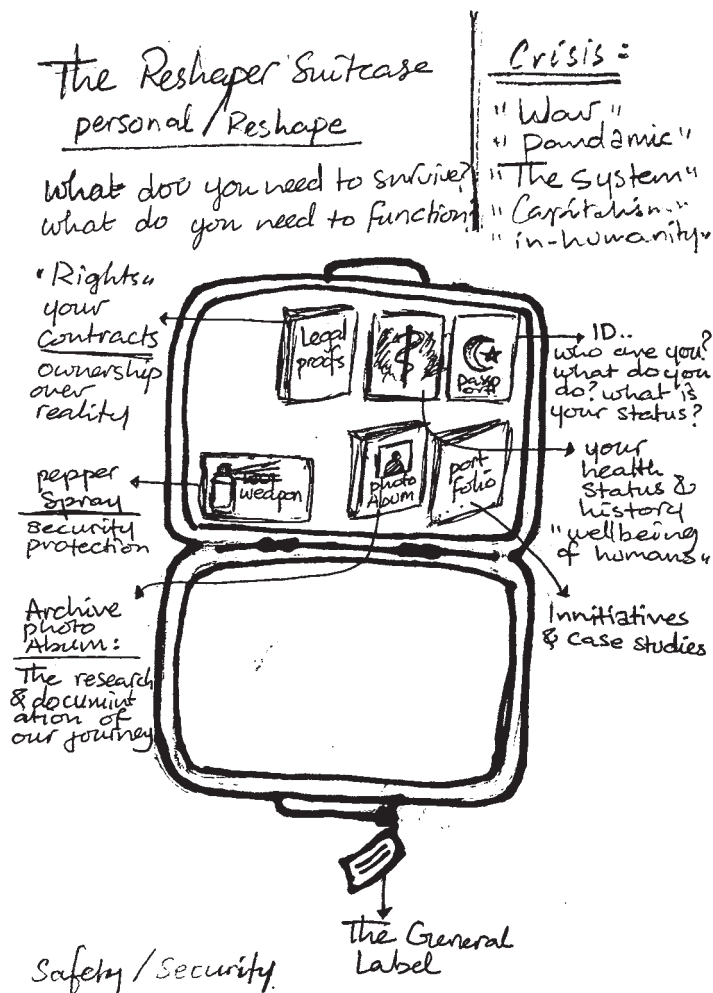 The Reshaper Suitcase
personal / Reshape
what doo you need to survive?
what do you need to function?
Crisis:
"War"
"pandamic"
"The system"
"Capitalism"
"in-humanity"
"Rights"
your
contracts
ownership
over
reality
Legal
proofs
passp
ort
ID..
who are you?
what do you
do? what is
your status?
pepper
Spray
security
protection
weapon
photo
Album
port
folio
your
health
status &
history
"wellbeing
of humans"
Archive
photo
Album:
The research
& documint
ation of
our journey
Innitiatives
& case studies
The General
Label
Safety / Security